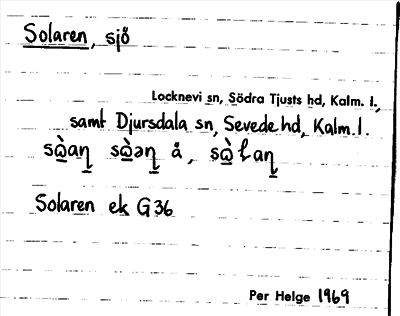 Solaren, sjö
Locknevi sn, Södra Tjusts hd, Kalm. l.,
samt Djursdala sn, Sevede hd, Kalm. l.
å,
Solaren ek G36
Per Helge 1969